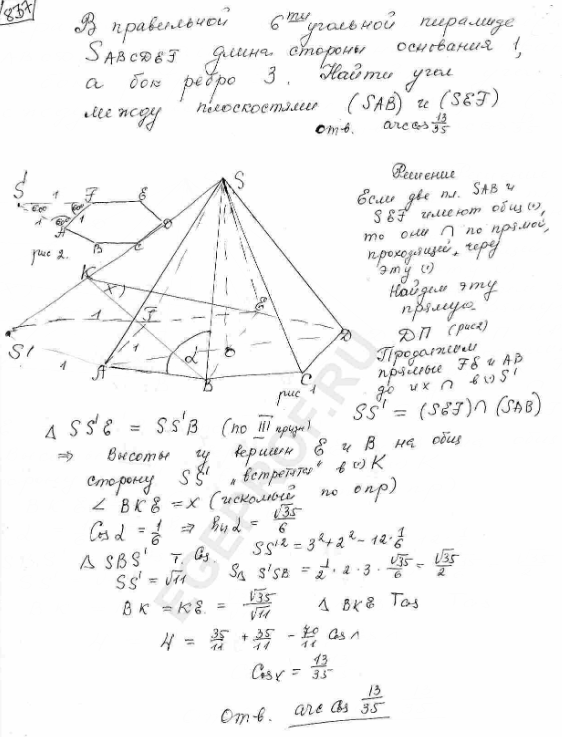 837
В правильной 6ти угольной пирамиде
SABCDEF длина стороны основания 1,
а бок ребро 3. Найти угол
между плоскостями (SAB) и (SEF)
отв. arccos 13/35
Решение
Если две пл. SAB и
SEF имеют общ (·),
то они ∩ по прямой,
проходящей через
эту (·)
Найдем эту
прямую
ДП (рис 2)
Продолжим
прямые FE и AB
до их ∩ в (·) S'
SS' = (SEF)∩(SAB)
S' 1 F E
60° 60°
1 60° 1
A D
B C
рис 2.
S
K
x
1 F E
S' D
1 1
A α O
B C
рис 1
Δ SS'E = SS'B (по III призн)
⇒ Высоты из вершин E и B на общ
сторону SS' „встретятся" в (·) K
∠ BKE = x (искомый по опр)
Cos α = 1/6 ⇒ sin α = √35/6
Δ SBS' т. cos. SS'² = 3² + 2² − 12·1/6
SS' = √11 SΔ S'SB = 1/2 · 2 · 3 · √35/6 = √35/2
BK = KE = √35/√11 Δ BKE Tcos
4 = 35/11 + 35/11 − 70/11 cos x
Cos x = 13/35
Отв. arc cos 13/35
EGEPROF.RU